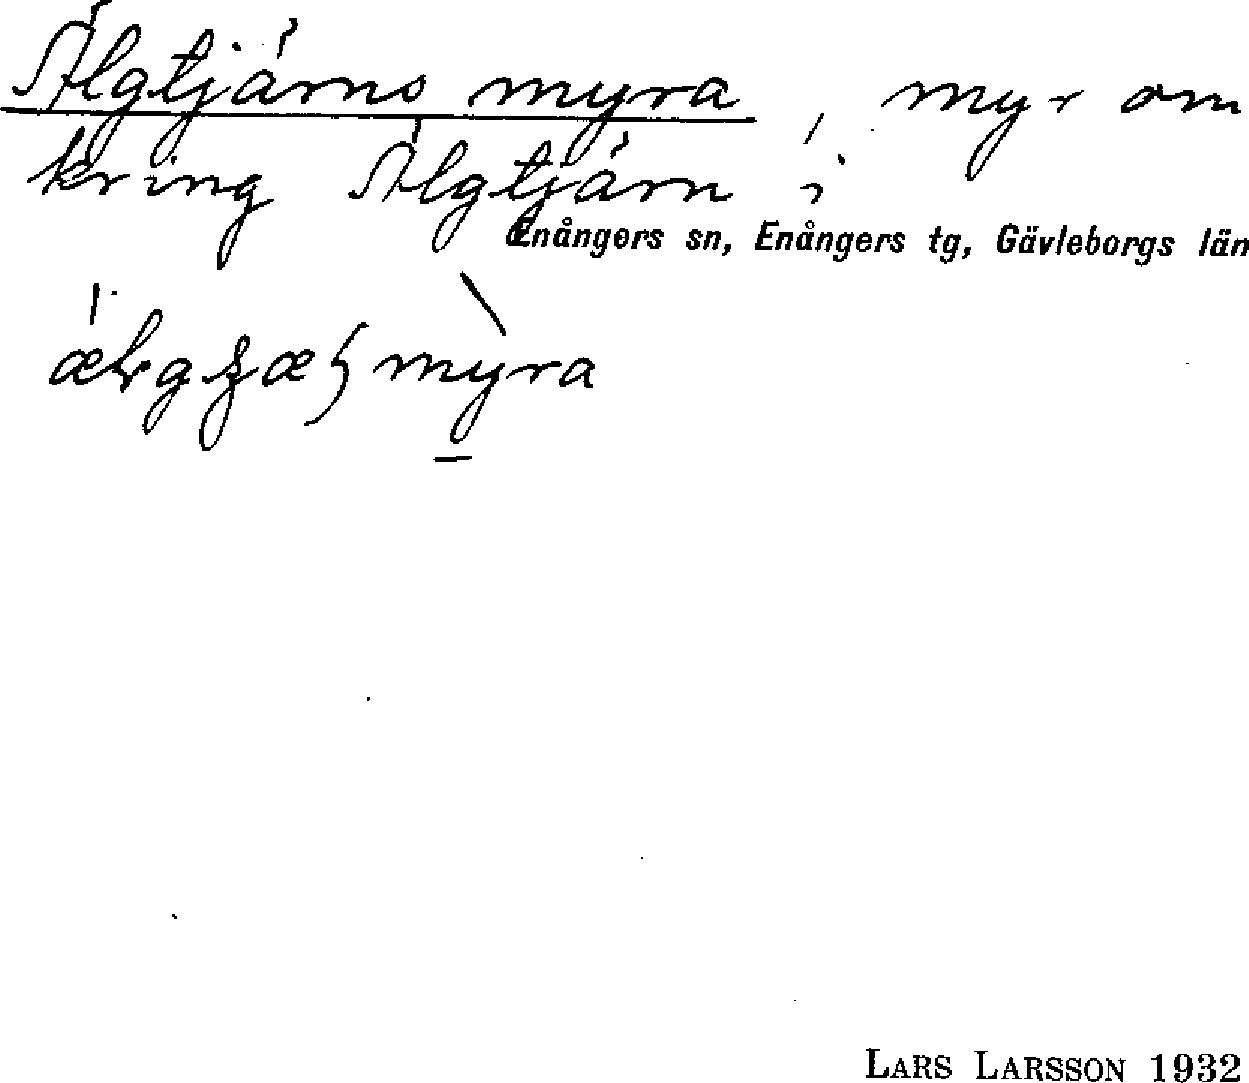 Älgtjärns myra, myr om
kring Älgtjärn i
Enångers sn, Enångers tg, Gävleborgs län
LARS LARSSON 1932